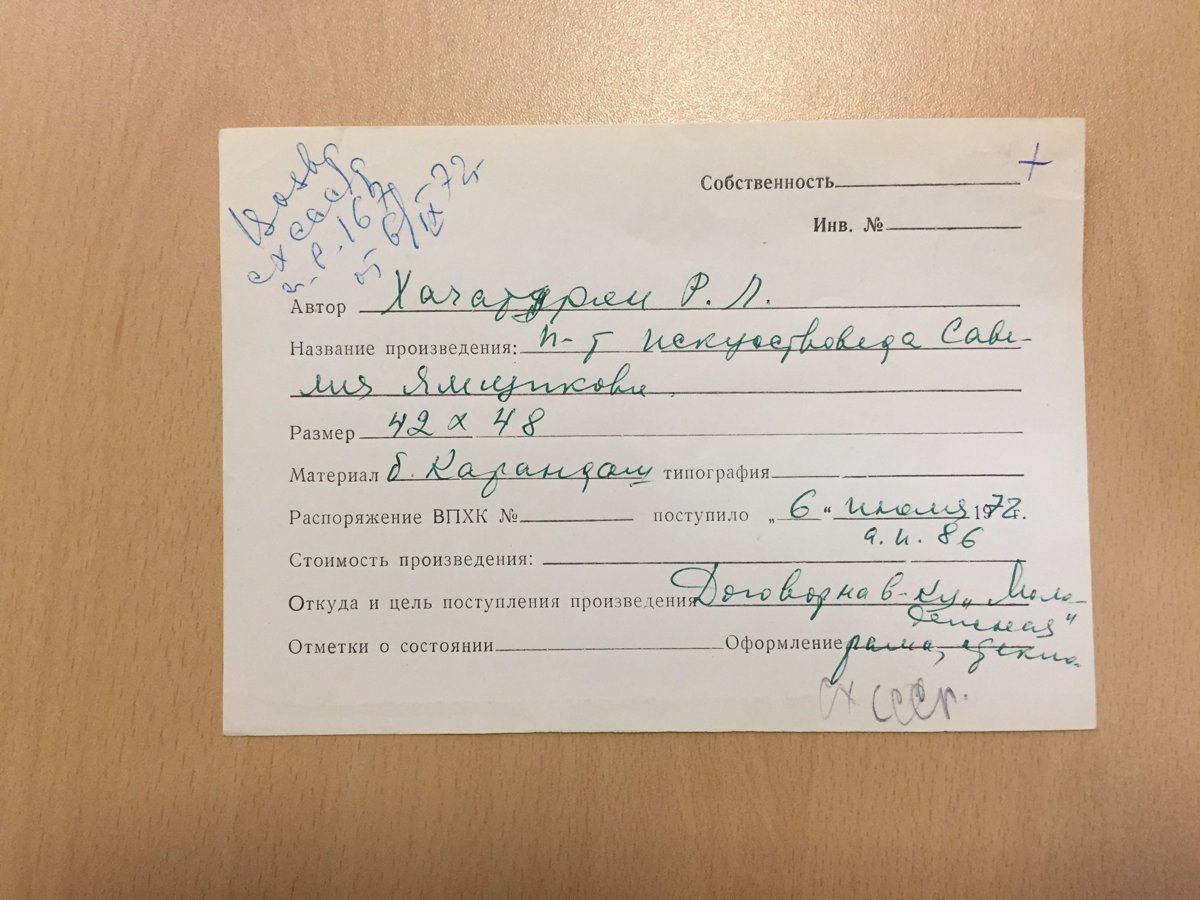 Возвр
СХ СССР
н. р. 167
от 6/IX 72г
Собственность +
Инв. №
Автор Хачатурян Р. Л.
Название произведения: п-т искусствоведа Саве-
лия Ямщикова.
Размер 42 х 48
Материал б. карандаш типография
Распоряжение ВПХК № поступило „6“ июля 1972г.
а.и. 86
Стоимость произведения:
Откуда и цель поступления произведения Договор на в-ку „Моло-
дежная"
Отметки о состоянии Оформление рама, стекло.
СХ СССР.